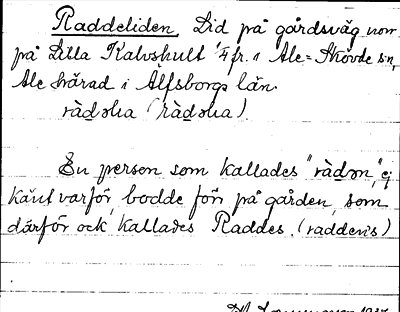 Raddeliden. Lid på gårdsväg norr
på Lilla Kalvshult 1/4 fr. i Ale-Skövde sn,
Ale härad i Älfsborgs län.
En person som kallades "ràdən", ej
känt varför, bodde förr på gården, som
därför ock kallades Raddes. (raddens)